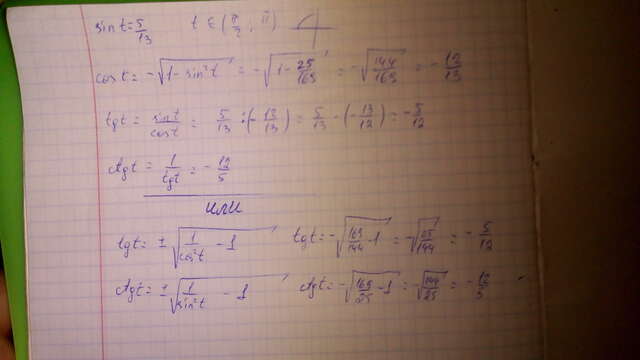 sin t = 5/13     t ∈ (π/2; π)
cos t = -√(1 - sin²t) = -√(1 - 25/169) = -√(144/169) = -12/13
tg t = sin t/cos t = 5/13 : (-12/13) = 5/13 · (-13/12) = -5/12
ctg t = 1/tg t = -12/5
или
tg t = ±√(1/cos²t - 1)     tg t = -√(169/144 - 1) = -√(25/144) = -5/12
ctg t = ±√(1/sin²t - 1)     ctg t = -√(169/25 - 1) = -√(144/25) = -12/5